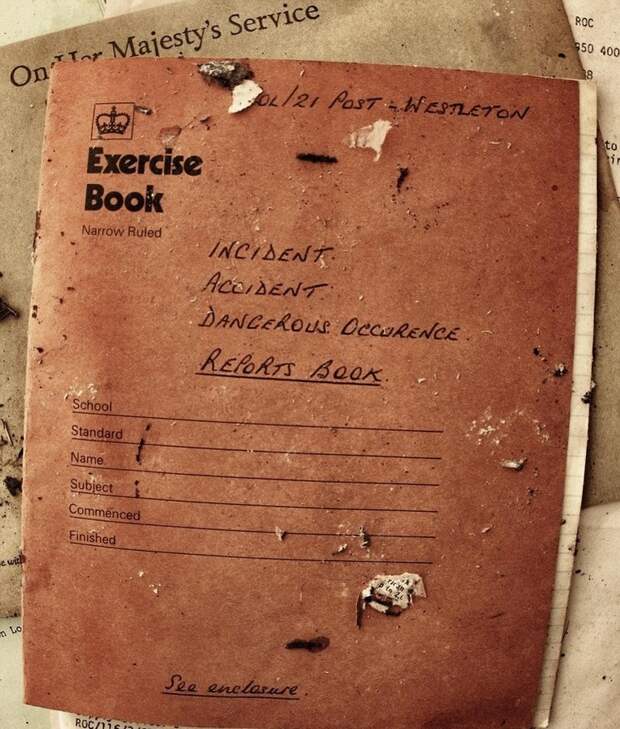 On Her Majesty's Service
ROC
950 400
8
OL/21 POST - WESTLETON
to
Exercise
Book
Narrow Ruled
INCIDENT.
ACCIDENT.
DANGEROUS OCCURENCE.
REPORTS BOOK.
School
Standard
Name
Subject
Commenced
Finished
See enclosure.